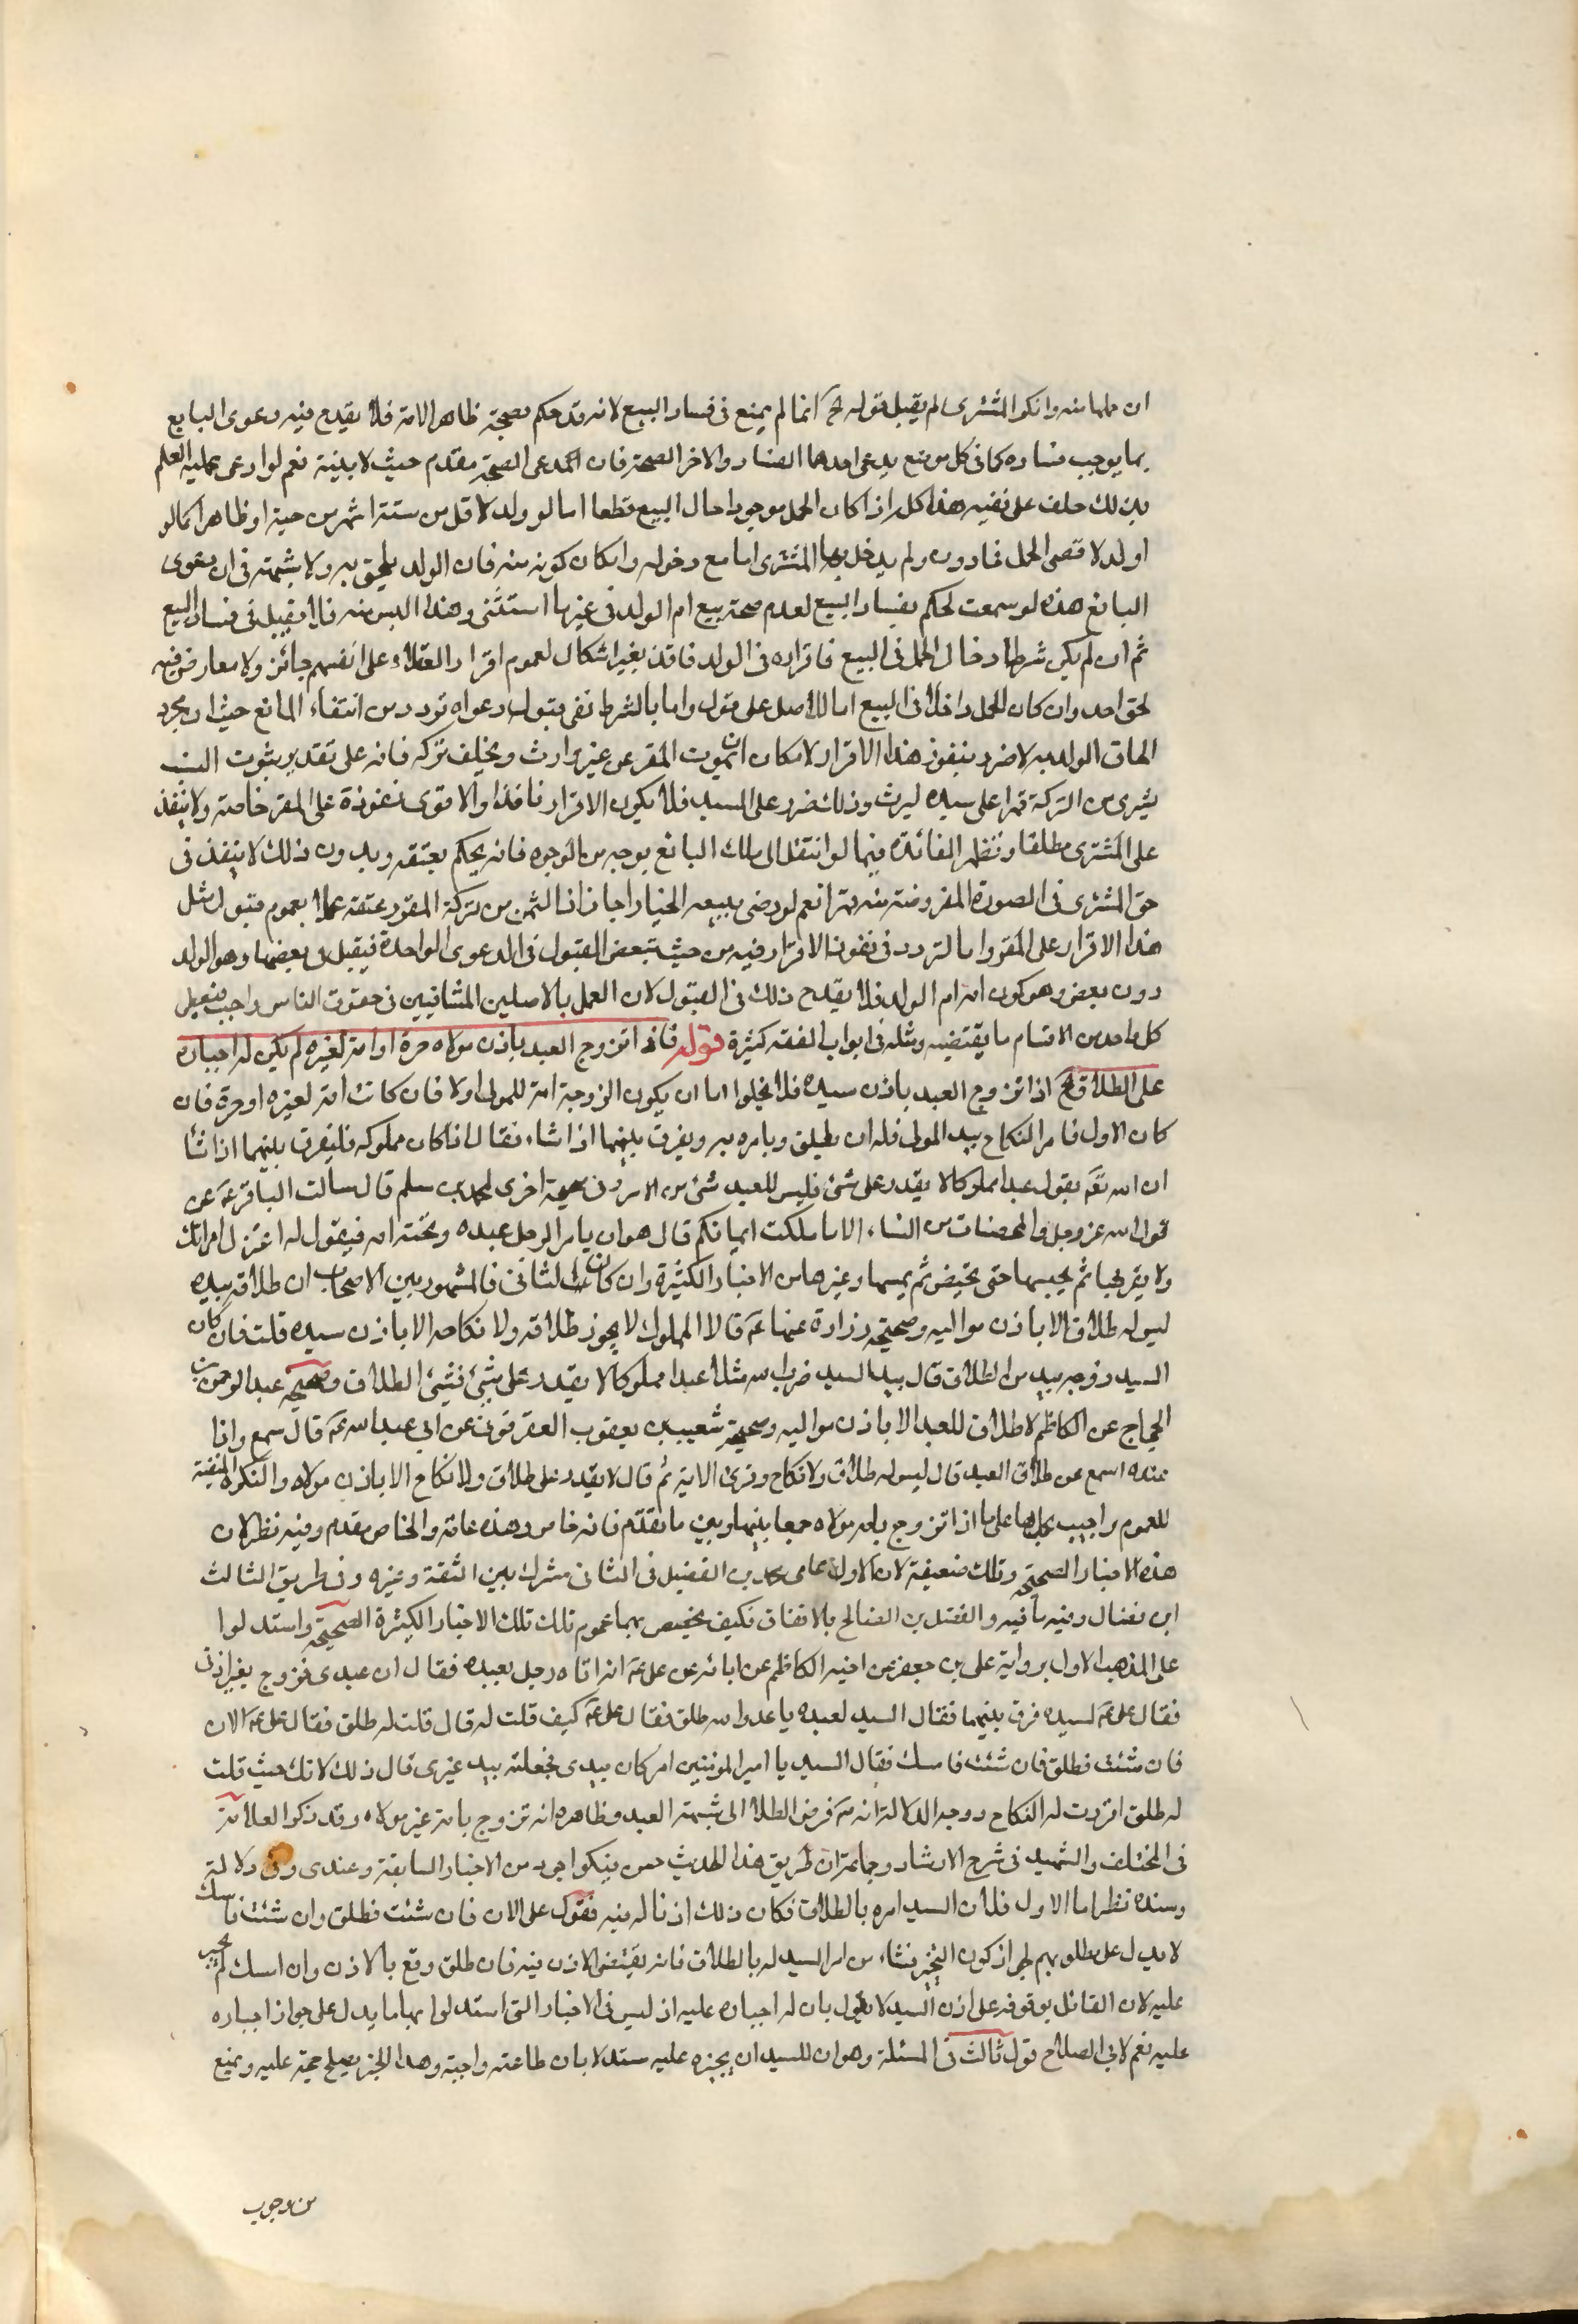 ان حملها منه وانكر المشترى لم يقبل قوله الخ انما لم يمنع فى فساد البيع لانه قد حكم بصحته ظاهرا لامة فلا يقدح فيه دعوى البايع
بما يوجب فساده كما فى كل موضع يدعى احدهما الفساد والاخر الصحة فان مدعى الصحة مقدم حيث لا بينة نعم لو ادعى عليه العلم
بذلك حلف على نفيه هذا كله اذا كان الحمل موجودا حال البيع قطعا اما لو ولد لاقل من ستة اشهر من حينه او ظاهرا كما لو
اولد لاقصى الحمل فما دون ولم يدخل بها المشترى اما مع دخوله وامكان كونه منه فان الولد يلحق به ولا شبهة فى ان دعوى
البائع هذه لو سمعت لحكم بفساد البيع لعدم صحة بيع ام الولد فى غير ما استثنى وهذا ليس منه فلا يقبل فى فساد البيع
ثم ان لم يكن شرط ادخال الحمل فى البيع فاقراره فى الولد نافذ بغير اشكال لعموم اقرار العقلاء على انفسهم جائز ولا معارض فيه
لحق احد وان كان الحمل داخلا فى البيع اما للاصل على قول واما بالشرط ففى قبول دعواه تردد من انتفاء المانع حيث ان مجرد
الحاق الولد به لا ضرر بنفوذ هذا الاقرار لامكان ان يموت المقر عن غير وارث ويخلف تركة فانه على تقدير ثبوت النسب
يشرى من التركة قهرا على سيده ليرث وذلك ضرر على السيد فلا يكون الاقرار نافذا والاقوى نفوذه على المقر خاصة ولا ينفذ
على المشترى مطلقا وتظهر الفائدة فيما لو انتقل الى ملك البائع بوجه من الوجوه فانه يحكم بعتقه وبدون ذلك لا ينفذ فى
حق المشترى فى الصورة المفروضة منه قهرا نعم لو رضى ببيعه اختيارا جاز اخذ الثمن من تركة المقر وعتقه عملا بعموم قبول مثل
هذا الاقرار على المقر واما التردد فى نفوذ الاقرار فيه من حيث تبعض القبول فى الدعوى الواحدة فيقبل فى بعضها وهو الولد
دون بعض وهو كون امه ام الولد فلا يقدح ذلك فى القبول لان العمل بالاصلين المتنافيين فى حقوق الناس واجب فيعمل
كل واحد من الاقسام ما يقتضيه ومثله فى ابواب الفقه كثيرة قوله فاذا تزوج العبد باذن مولاه حرة او امة لغيره لم يكن له اجباره
على الطلاق الخ اذا تزوج العبد باذن سيده فلا يخلوا اما ان يكون الزوجة امة للمولى اولا فان كانت امة لغيره او حرة فان
كان الاول فامر النكاح بيد المولى فله ان يطلق ويامره به ويفرق بينهما اذا شاء فقال اذا كان مملوكه فليفرق بينهما اذا شا
ان الله تعه يقول عبدا مملوكا لا يقدر على شئ فليس للعبد شئ من الامر وفى صحيحة اخرى لمحمد بن مسلم قال سالت الباقر عه عن
قول الله عز وجل والمحصنات من النساء الا ما ملكت ايمانكم قال هو ان يامر الرجل عبده وتحته امه فيقول له اعتزل امراتك
ولا يقربها ثم يحبسها حتى تحيض ثم يمسها وغيرها من الاخبار الكثيرة وان كان الثانى فالمشهور بين الاصحاب ان طلاقه بيده
ليس له طلاق الا باذن مواليه وصحيحة زرارة عنهما عه قالا المملوك لا يجوز طلاقه ولا نكاحه الا باذن سيده قلت فان كان
السيد زوجه بيد من الطلاق قال بيد السيد ضرب الله مثلا عبدا مملوكا لا يقدر على شئ فشئ الطلاق وصحيحه عبد الرحمن بن
الحجاج عن الكاظم لا طلاق للعبد الا باذن مواليه وصحيحة شعيب بن يعقوب العقرقوفى عن ابى عبد الله عه قال سمع وانا
عنده اسمع عن طلاق العبد قال ليس له طلاق ولا نكاح وقرئ الاية ثم قال لا يقدر على طلاق ولا نكاح الا باذن مولاه والنكرة المنفية
للعموم واجيب بحملها على ما اذا تزوج بامة مولاه جمعا بينها وبين ما تقدم فانه خاص وهذه عامة والخاص مقدم وفيه نظر لان
هذه الاخبار الصحيحه وتلك ضعيفة لان الاول محمد بن الفضيل فى الثانى مشترك بين الثقة وغيره وفى طريق الثالث
ابن فضال وفيه ما فيه والفضل بن الصالح بالاتفاق فكيف يخصص بهما عموم تلك تلك الاخبار الكثيرة الصحيحة واستدلوا
على المذهب الاول برواية على بن جعفر عن اخيه الكاظم عن ابائه عن على عه انه اتاه رجل بعبده فقال ان عبدى تزوج بغير اذنى
فقال على عه لسيده فرق بينهما فقال السيد لعبده يا عدو الله طلق فقال على عه كيف قلت له قال قلت له طلق فقال على عه الان
فان شئت فطلق فان شئت فامسك فقال السيد يا امير المؤمنين امر كان بيدى فجعلته بيد غيرى قال ذلك لانك حيث قلت
له طلق اقررت له النكاح ووجه الدلالة انه عه فرض الطلا الى شبهة العبد وظاهره انه تزوج بامة غير مولاه وقد ذكر العلامة
فى المختلف والشهيد فى شرح الارشاد وجماعة ان طريق هذا الحديث حسن فيكو اجود من الاخبار السابقة وعندى وفى دلالته
وسنده نظر اما الاول فلان السيد امره بالطلاق فكان ذلك اذنا له فيه فقوله على الان فان شئت فطلق وان شئت فامسك
لا يدل على مطلوبهم لجواز كون التخيير منشاء من امر السيد له بالطلاق فانه يقتضى الاذن فيه فان طلق وقع بالاذن وان امسك لم يجب
عليه لان القائل بوقوفه على اذن السيد لا يقول بان له اجباره عليه اذ ليس فى الاخبار التى استدلوا بها ما يدل على جواز اجباره
عليه نعم لابى الصلاح قول ثالث فى المسئلة وهو ان للسيد ان يجبره عليه مستدلا بان طاعته واجبة وهذا الخبر يصلح حجة عليه ويمنع
من وجوب